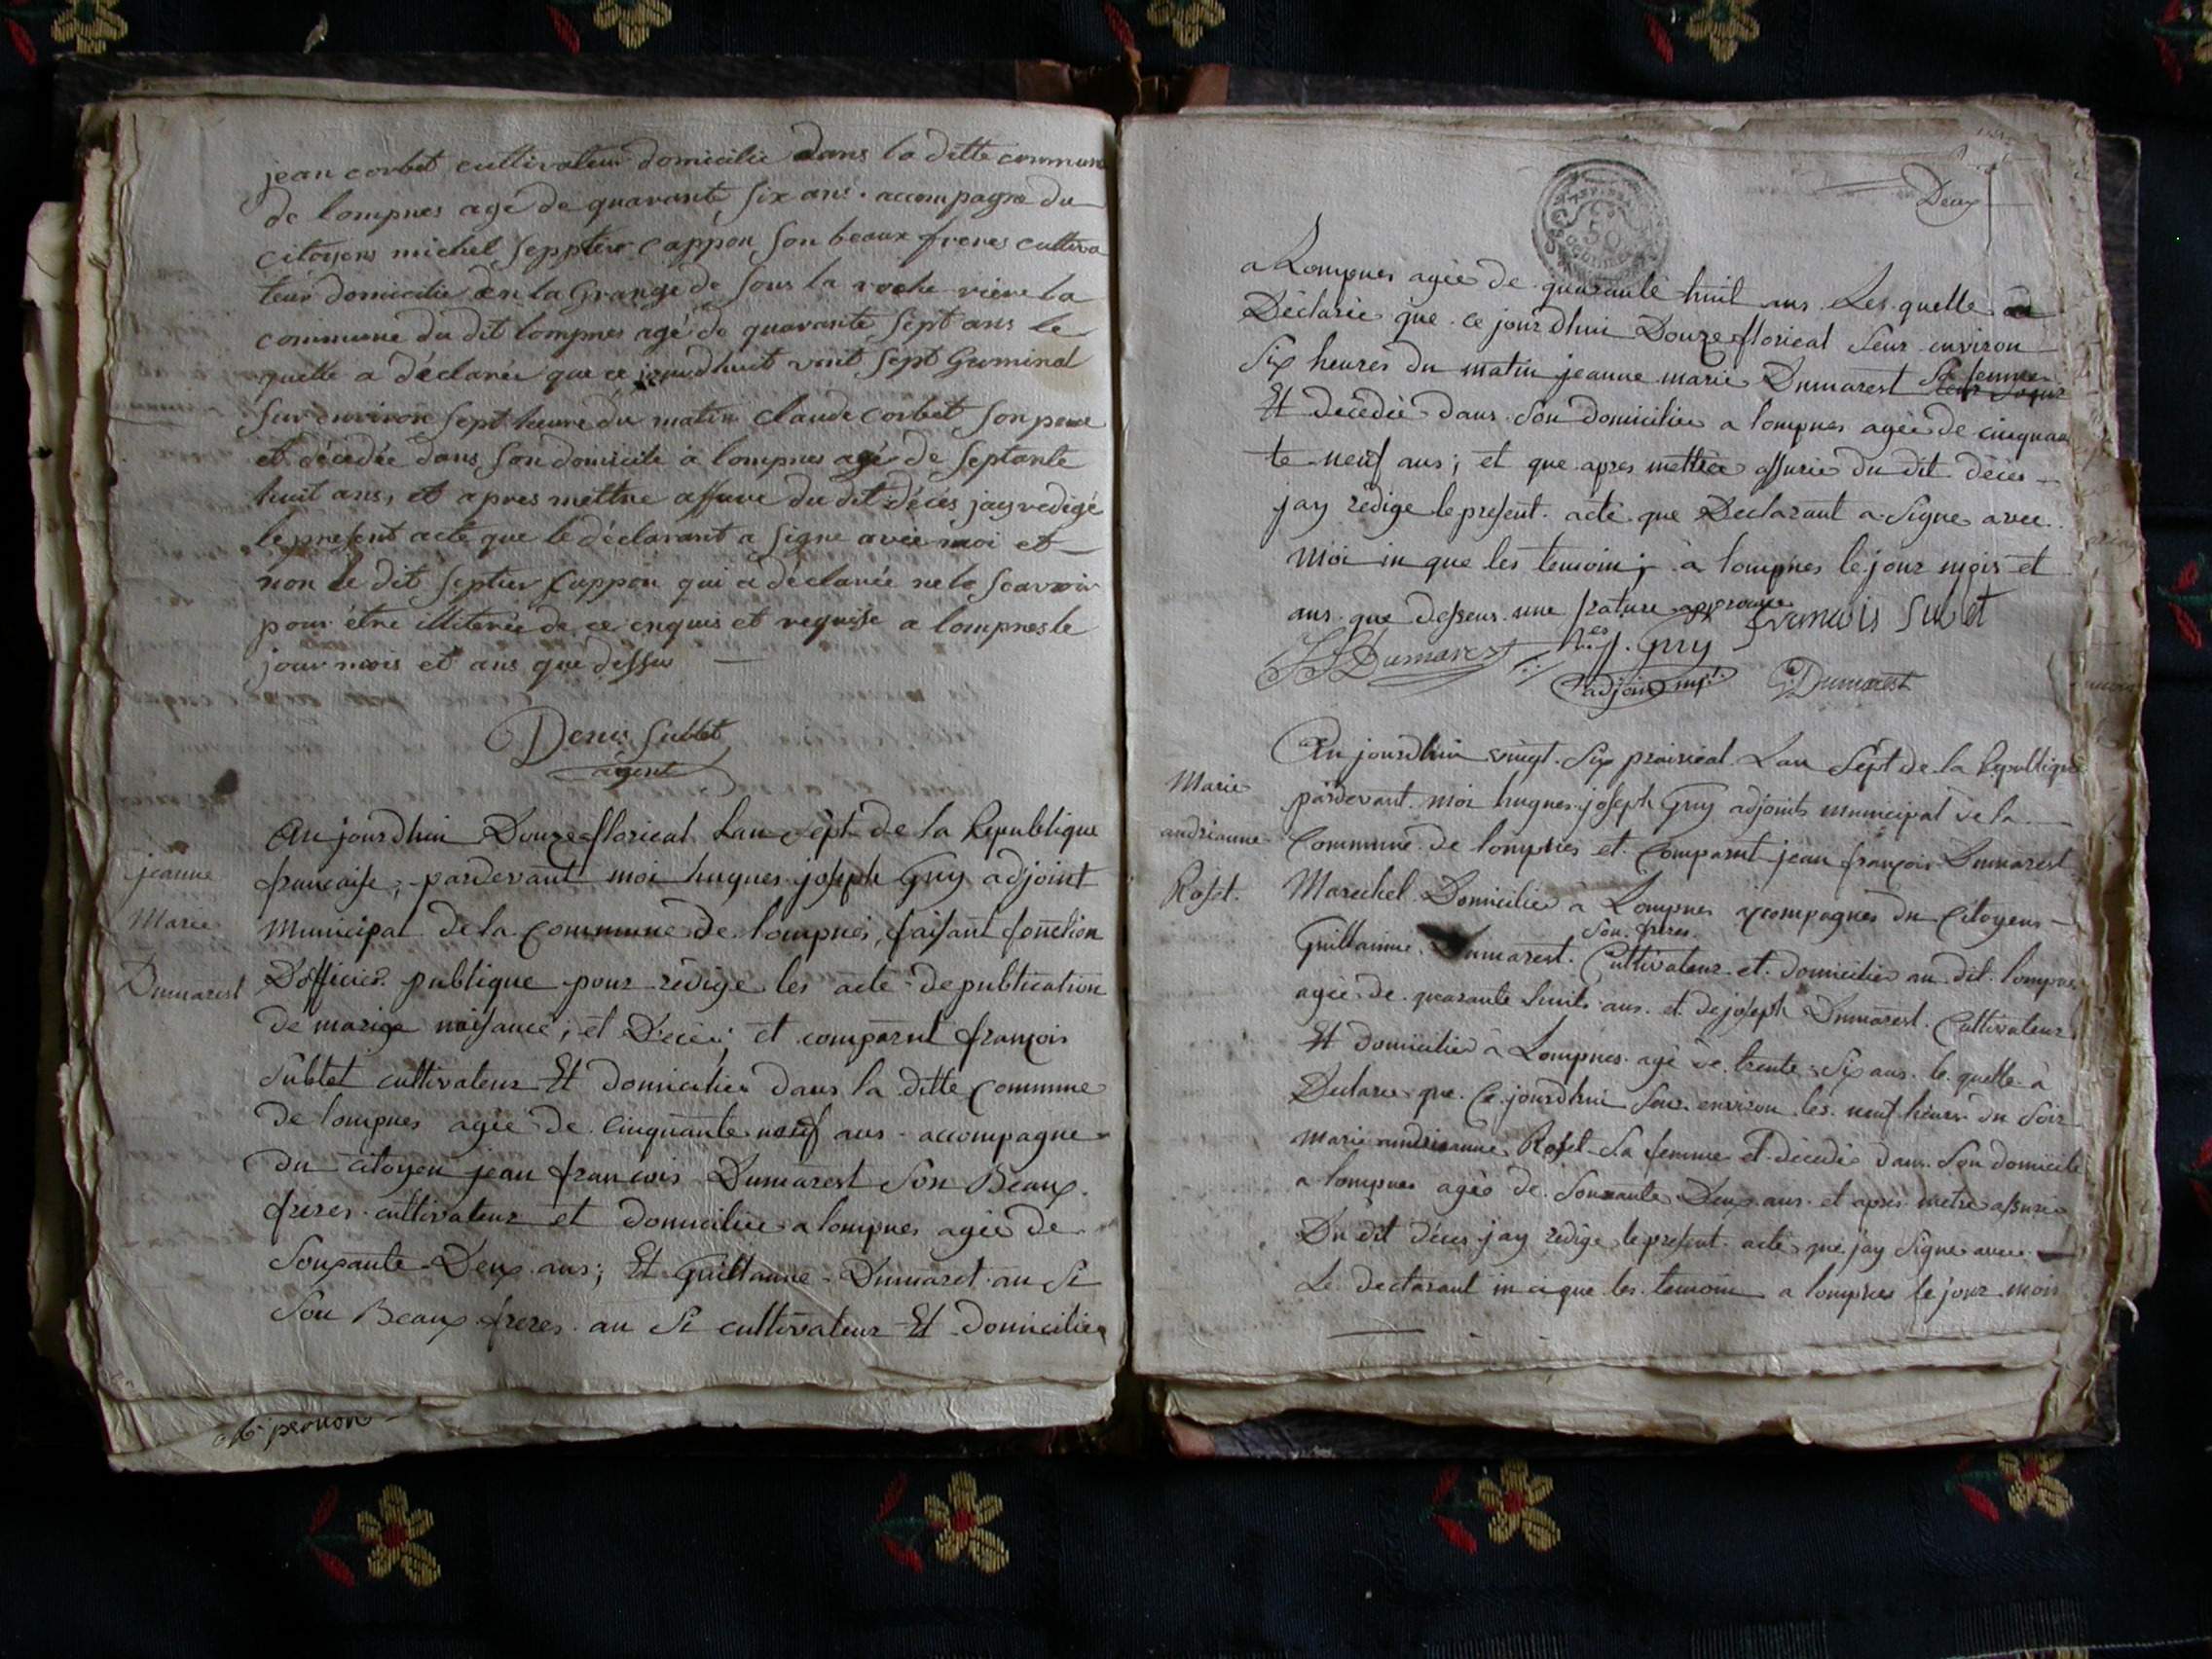 jean corbet cultivateur domicilié dans la ditte commune
de lompnes agé de quarante six ans . accompagné du
citoyens michel seppter cappon son beaux freres cultiva
teur domicilié en la Grange de sous la roche riere la
commune du dit lompnes agé de quarante sept ans le
quelle a déclarée que ce jourdhuit vint sept Germinal
sur environ sept heure du matin claude corbet son pere
et décédée dans son domicile à lompnes agé de septante
huit ans, et apres mettre assure du dit décés jay redigé
le present acte que le déclarant a signe avec moi et
non le dit septier cappon qui a déclarée ne le scavoir
pour étre illiterée de ce enquis et requise a lompnes le
jour mois et ans que dessus
Denis Sublet
agent
jeanne
Marie
Dumarest
Au jourdhui Douze florieal Lan sept de la Republique
francaise, pardevant moi hugues joseph Guy adjoint
municipal de la Commune de lompnes, faisant fonction
Dofficier publique pour rédige les acte de publication
de marige naisance, et Décéz; et comparut françois
Sublet cultivateur Et domicilier dans la ditte Commune
de lompnes agée de cinquante neuf ans accompagne
du citoyen jean francois Dumarest son Beaux
freres cultivateur et domicilier a lompnes agée de
Soixante Deux ans; Et Guillaume Dumaret au si
Son Beaux freres au si cultivateur Et Domicilier
M. perron
Deux
50
a Lompnes agée de quarante huit ans Les quelle a
Déclarée que ce jourdhui Douze florieal seur environ
Six heures du matin jeanne marie Dumarest sa femme
Et decédée dans son domicilier a lompnes agée de cinquan
te neuf ans; et que apres mettre assurée du dit décès
jay rédige le present acte que Declarant a signe avec
moi in que les temoin; à lompnes le jour mois et
ans que desseus une rature approuvée françois Sublet
JF Dumarest h.es j. Guy
adjoin mpl G Dumarest
Marie
andrianne
Roset.
Au jourdhui vingt six prairieal Lan Sept de la Republique
pardevant moi hugues joseph Guy adjoints municipal de la
Commune de lompnes et Comparut jean françois Dumarest
Marechel Domicilier a Lompnes acompagnés du Citoyens
son freres
Guillaume Dumarest. Cultivateur et domicilier au dit lompnes
agée de quarante huit ans et de joseph Dumarest Cultivateur
Et domicilier à Lompnes agé de trente six ans le quelle à
Declaree que Ce jourdhui seur environ les neuf heures du soir
Marie andrianne Roset sa femme et décedée dans son domicile
a lompnes agée de soixante Deux ans et après metre assurée
Du dit décès jay rédige le present acte que jay signe avec
Le declarant in ci que les temoin a lompnes le jour mois